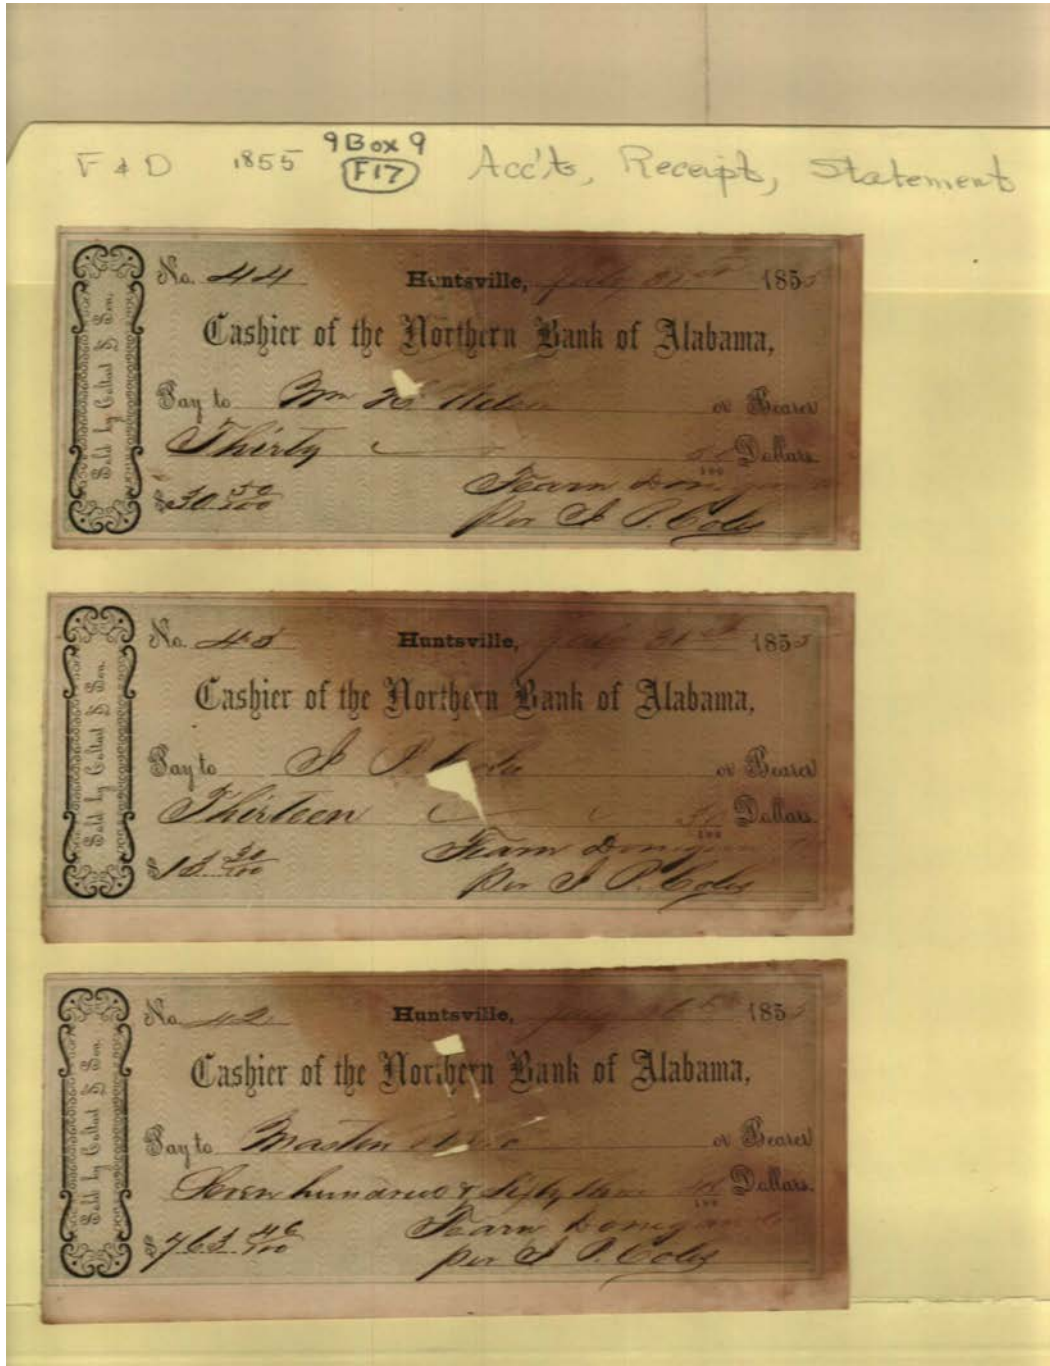 9 Box 9
F & D 1855 F17 Acc'ts, Receipt, Statement
Sold by Coltart & Son.
No. 44 Huntsville, July 31st 1855
Cashier of the Northern Bank of Alabama,
Pay to Wm or Bearer
Thirty 50/100 Dollars
$30 50/100 Fearn Donegan
per J P. Coles
Sold by Coltart & Son.
No. Huntsville, July 31st 1855
Cashier of the Northern Bank of Alabama,
Pay to J P. Coles or Bearer
Thirteen 30/100 Dollars.
$13 30/100 Fearn Donegan
per J P. Coles
Sold by Coltart & Son.
No. 42 Huntsville, July 1855
Cashier of the Northern Bank of Alabama,
Pay to Maston or Bearer
Seven hundred & Dollars.
$763 46/100 Fearn Donegan & Co
per J P. Coles